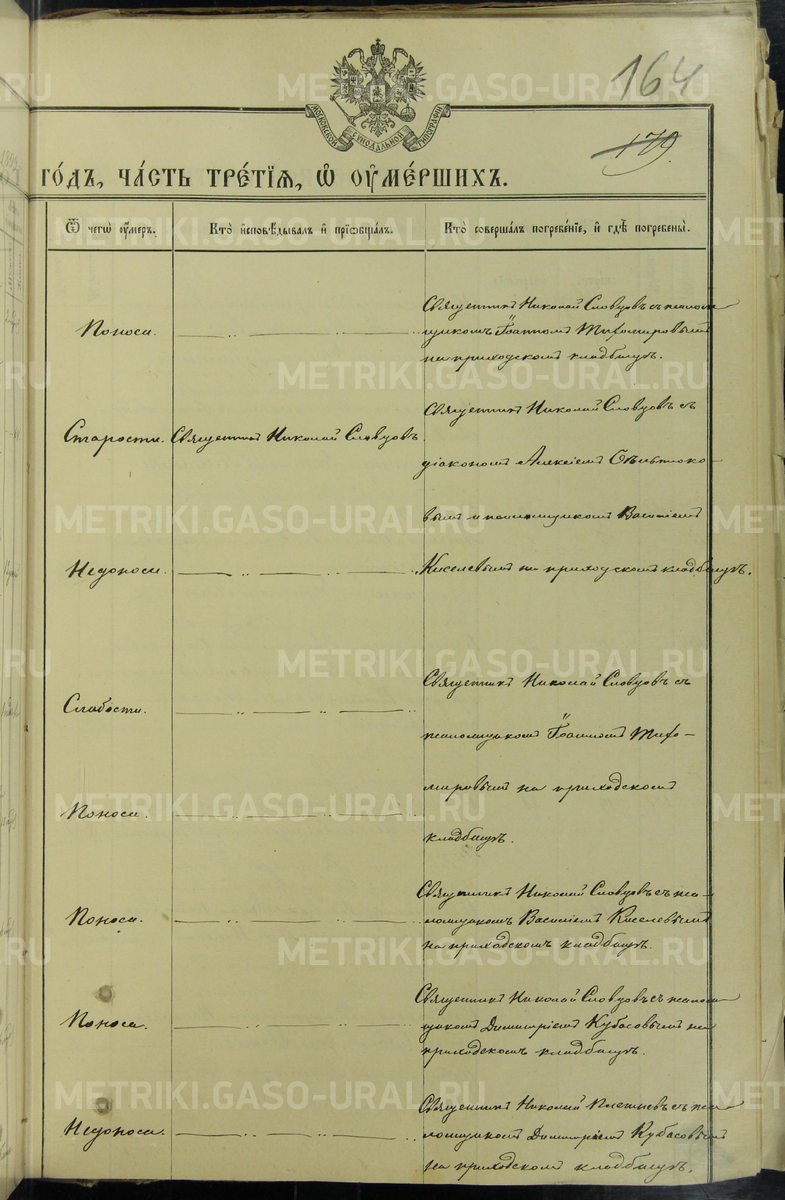 164
179.
МОСКОВСКОЙ СѴНОДАЛЬНОЙ ТИПОГРАФІИ
ГО́ДЪ, ЧА́СТЬ ТРЕ́ТІЯ, Ѽ ОУ҆МЕ́РШИХЪ.
Ѿ чегѡ̀ оу҆́меръ.
Кто̀ и҆сповѣ́дывалъ и҆ прїѡбща́лъ.
Кто̀ соверша́лъ погребе́нїе, и҆ гдѣ̀ погребены̀.
Поноса.
Священникъ Николай Словцовъ съ псалом
щикомъ Іоанномъ Тихомировымъ
на приходскомъ кладбищѣ.
Старости.
Священникъ Николай Словцовъ.
Священникъ Николай Словцовъ съ
діакономъ Алексіемъ
вымъ и псаломщикомъ Василіемъ
Недоноса.
Киселевымъ на приходскомъ кладбищѣ.
Слабости.
Священникъ Николай Словцовъ съ
псаломщикомъ Іоанномъ Тихо-
мировымъ на приходскомъ
Поноса.
кладбищѣ.
Поноса.
Священникъ Николай Словцовъ съ пса-
ломщикомъ Василіемъ Киселевымъ
на приходскомъ кладбищѣ.
Поноса.
Священникъ Николай Словцовъ съ псалом
щикомъ Димитріемъ Кубасовымъ на
приходскомъ кладбищѣ.
Недоноса.
Священникъ Николай Плетневъ съ пса
ломщикомъ Димитріемъ Кубасовымъ
на приходскомъ кладбищѣ.
METRIKI.GASO-URAL.RU